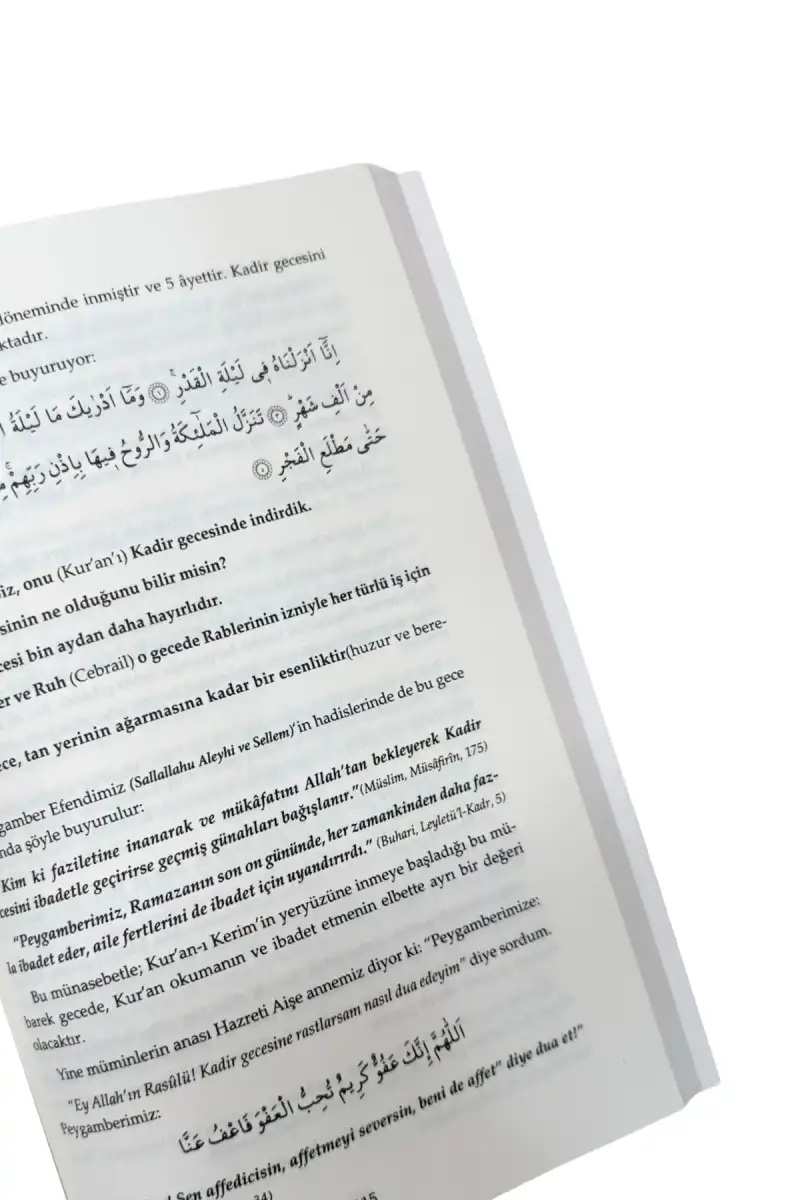 döneminde inmiştir ve 5 âyettir. Kadir gecesini
ktadır.
e buyuruyor:
اِنَّٓا اَنْزَلْنَاهُ ف۪ي لَيْلَةِ الْقَدْرِۚ ﴿١﴾ وَمَٓا اَدْرٰيكَ مَا لَيْلَةُ
مِنْ اَلْفِ شَهْرٍۜ ﴿٣﴾ تَنَزَّلُ الْمَلٰٓئِكَةُ وَالرُّوحُ ف۪يهَا بِاِذْنِ رَبِّهِمْۚ
حَتّٰى مَطْلَعِ الْفَجْرِ ﴿٥﴾
iz, onu (Kur'an'ı) Kadir gecesinde indirdik.
sinin ne olduğunu bilir misin?
cesi bin aydan daha hayırlıdır.
er ve Ruh (Cebrail) o gecede Rablerinin izniyle her türlü iş için
ce, tan yerinin ağarmasına kadar bir esenliktir(huzur ve bere-
gamber Efendimiz (Sallallahu Aleyhi ve Sellem)'in hadislerinde de bu gece
nda şöyle buyurulur:
Kim ki faziletine inanarak ve mükâfatını Allah'tan bekleyerek Kadir
cesini ibadetle geçirirse geçmiş günahları bağışlanır."(Müslim, Müsâfirîn, 175)
"Peygamberimiz, Ramazanın son on gününde, her zamankinden daha faz-
la ibadet eder, aile fertlerini de ibadet için uyandırırdı." (Buhari, Leyletü'l-Kadr, 5)
Bu münasebetle; Kur'an-ı Kerim'in yeryüzüne inmeye başladığı bu mü-
barek gecede, Kur'an okumanın ve ibadet etmenin elbette ayrı bir değeri
olacaktır.
Yine müminlerin anası Hazreti Aişe annemiz diyor ki: "Peygamberimize:
"Ey Allah'ın Rasûlü! Kadir gecesine rastlarsam nasıl dua edeyim" diye sordum.
Peygamberimiz:
اَللّٰهُمَّ إِنَّكَ عَفُوٌّ كَرِيمٌ تُحِبُّ الْعَفْوَ فَاعْفُ عَنَّا
! Sen affedicisin, affetmeyi seversin, beni de affet" diye dua et!"
34)
15